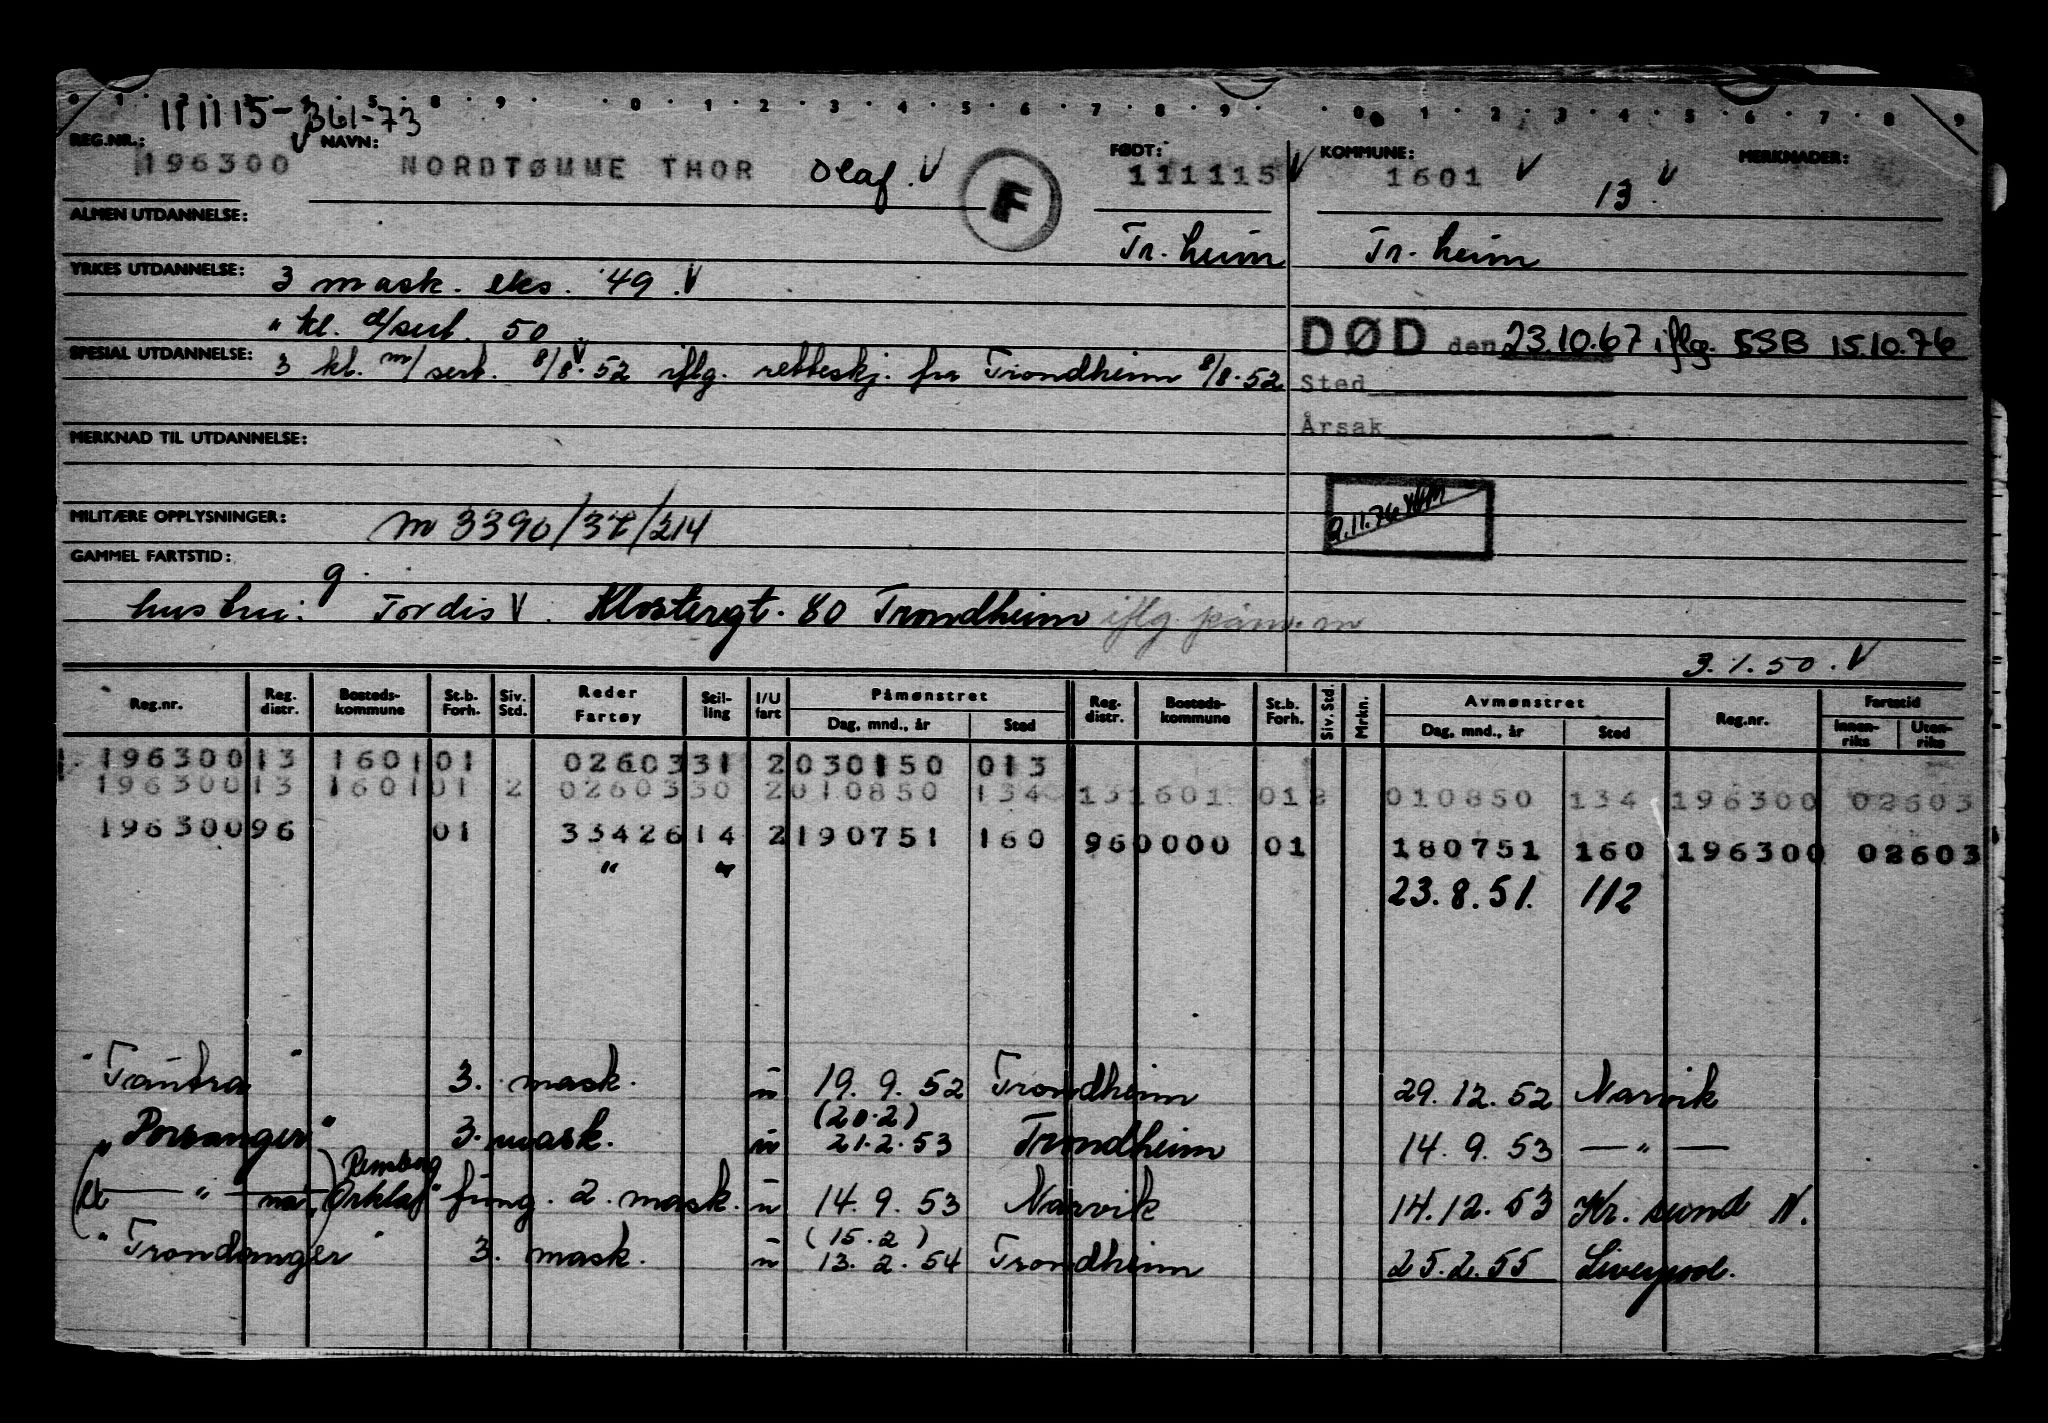 0 1 2 3 4 5 8 9 0 1 2 3 4 5 6 7 8 9 0 1 2 3 4 5 6 7 8 9
111115-361-73
REG.NR.: NAVN: FØDT: KOMMUNE: MERKNADER:
196300 V NORDTØMME THOR Olaf. V F 111115 V 1601 V 13. V
ALMEN UTDANNELSE:
Tr. heim Tr. heim
YRKES UTDANNELSE: 3 mask. eks. '49. V
" kl. d/sert. 50 DØD den 23.10.67 iflg. SSB 15.10.76
SPESIAL UTDANNELSE: 3 kl. m/sert. 8/8. 52 V iflg. retteskj. fra Trondheim 8/8.52 Sted
Årsak
MERKNAD TIL UTDANNELSE:
MILITÆRE OPPLYSNINGER: m 3390/37/214
GAMMEL FARTSTID:
g.
hustru: Tordis V. Klostergt. 80 Trondheim iflg. påm. m
3.1.50. V
Reg.nr. Reg. distr. Bosteds-kommune St.b. Forh. Siv. Std. Reder Fartøy Stil-ling I/U fart Påmønstret Dag, mnd., år Sted Reg. distr. Bosteds-kommune St.b. Forh. Siv. Std. Mrkn. Avmønstret Dag, mnd., år Sted Reg.nr. Fartstid Innen-riks Uten-riks
196300 13 1601 01 02603 31 2 030150 013
196300 13 1601 01 2 02603 30 2 010850 134 13 1601 01 2 010850 134 196300 02603
196300 96 01 33426 14 2 190751 160 96 0000 01 180751 160 196300 02603
" " 23.8.51. 112
"Tautra" 3. mask. u 19.9.52 Trondheim 29.12.52 Narvik
(20.2)
"Porsanger" 3. mask. u 21.2.53 Trondheim 14.9.53 — " —
— " — "Orklaf" fung. 2. mask. u 14.9.53 Narvik 14.12.53 Kr. sund N.
(15.2)
"Trondanger" 3. mask. u 13.2.54 Trondheim 25.2.55 Liverpool.